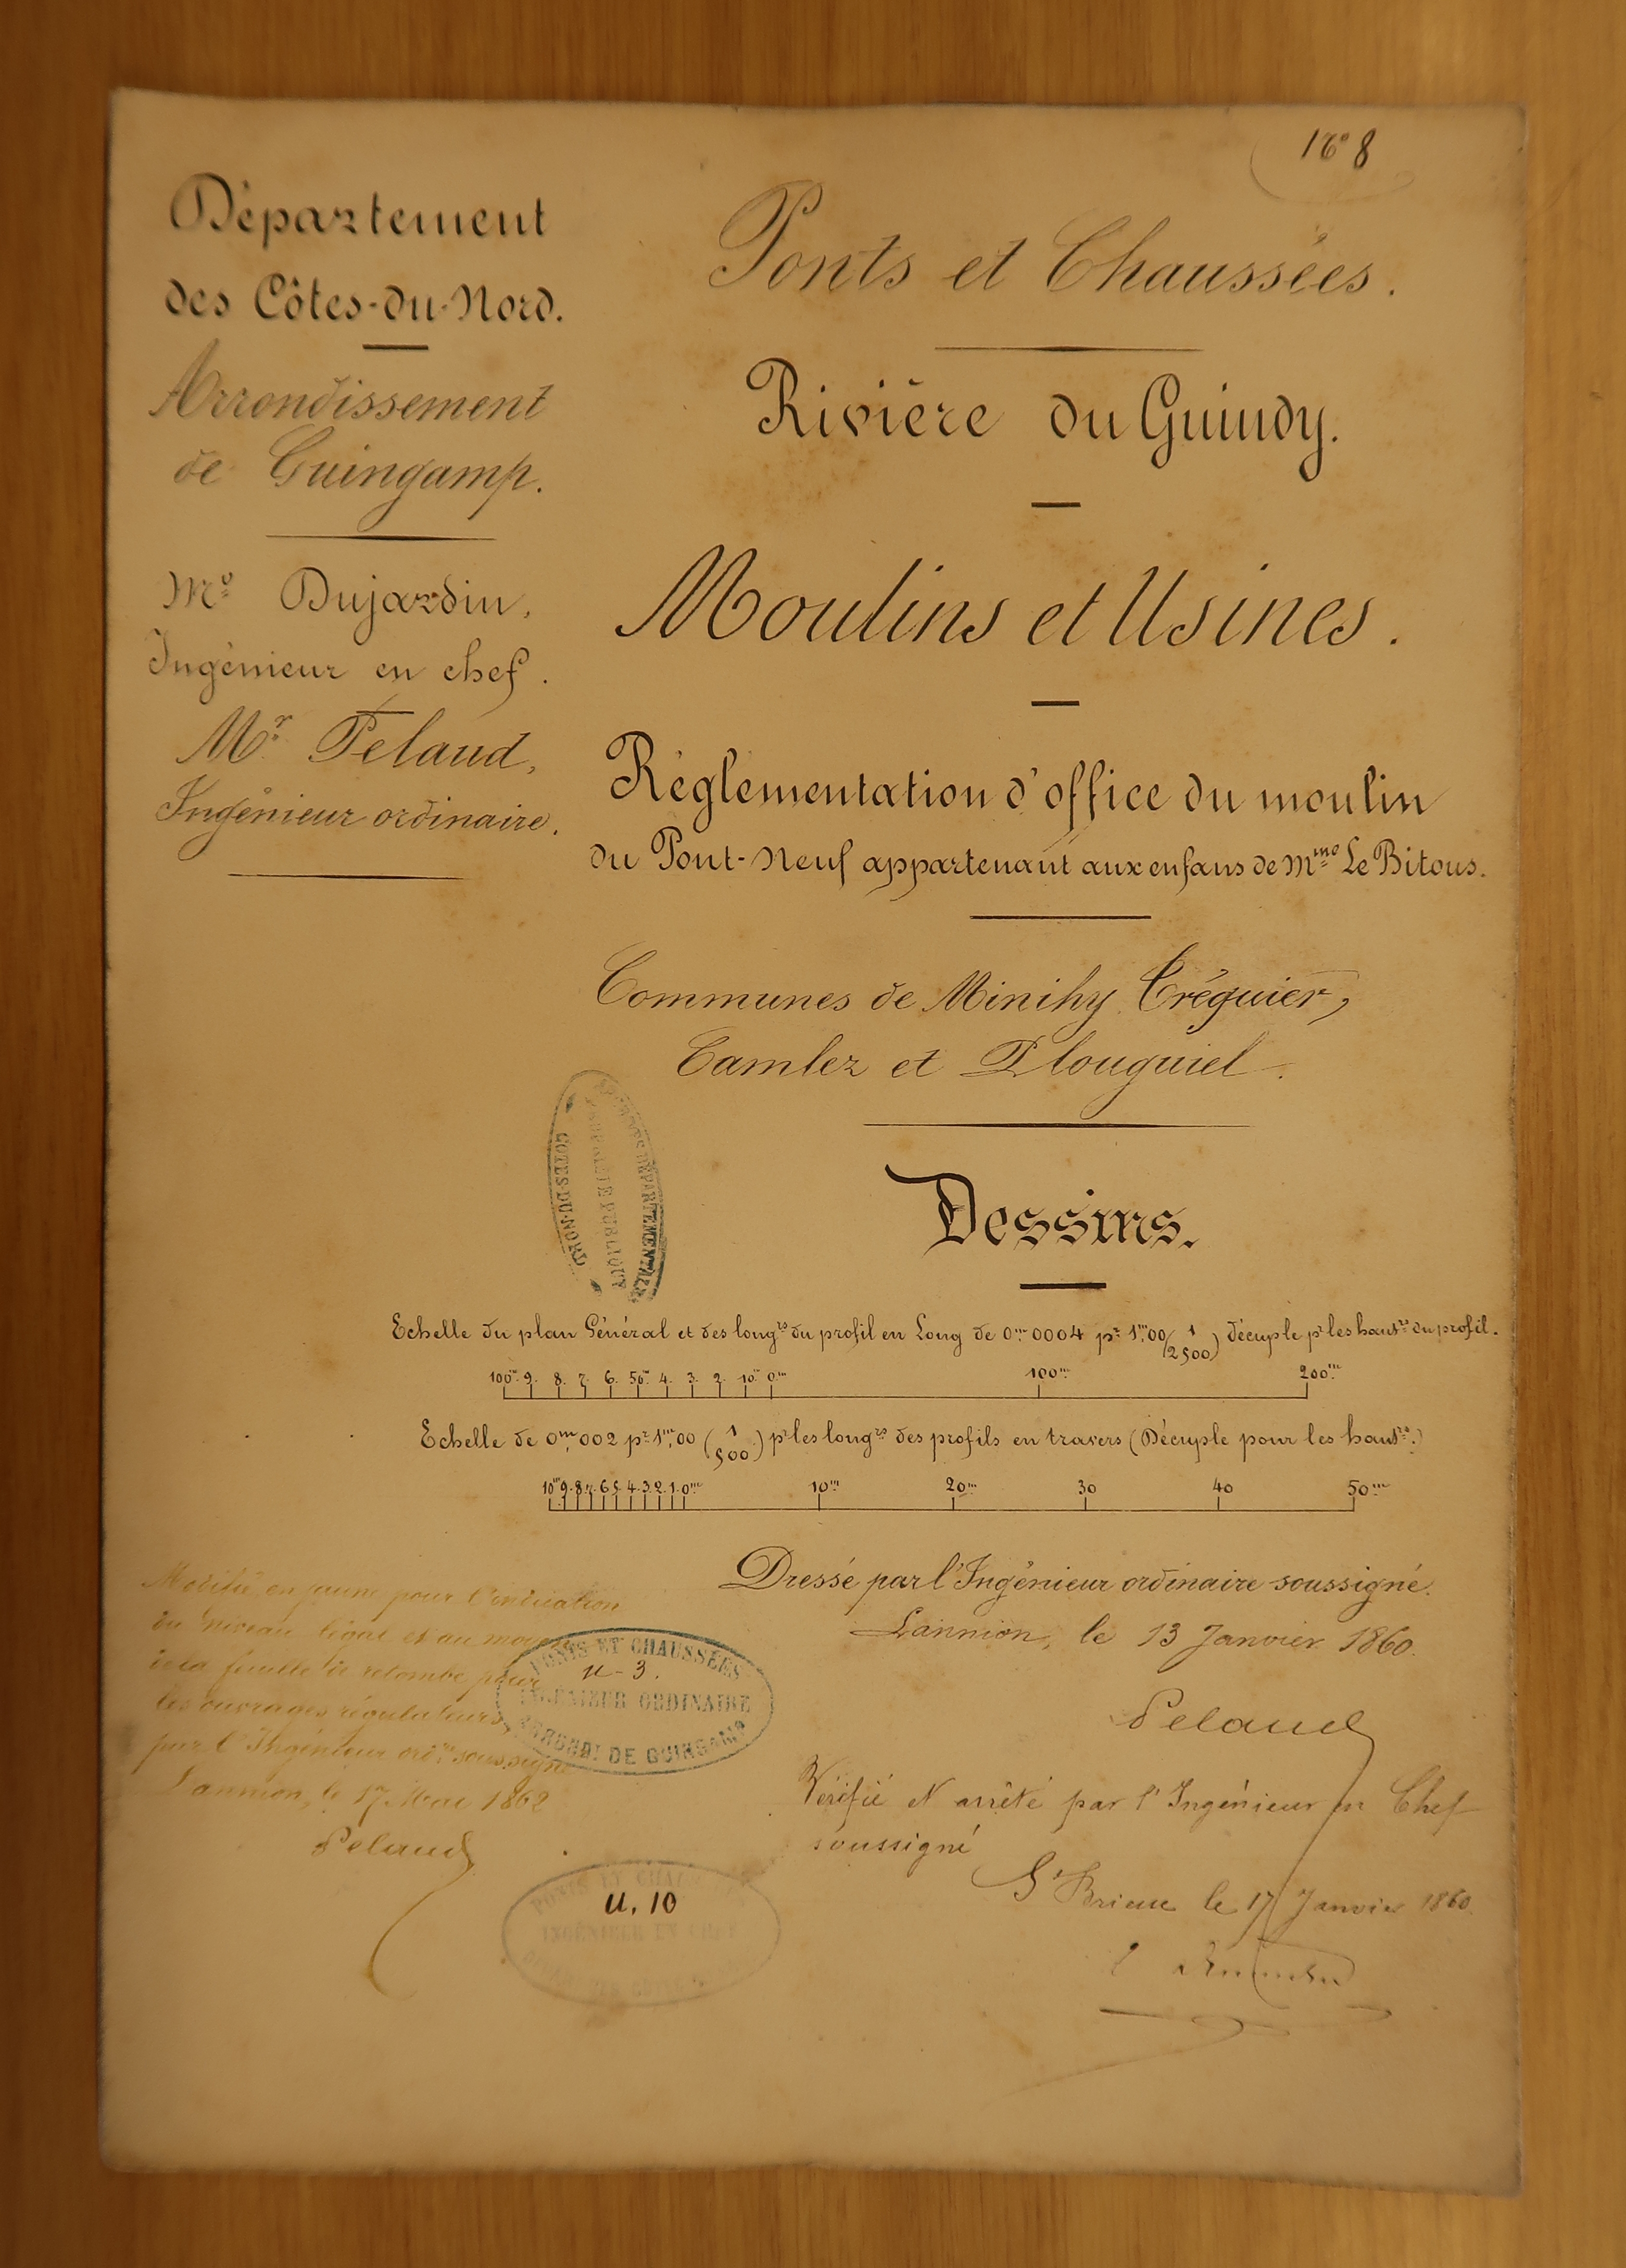 N° 8
Département
des Côtes-du-Nord.
Arrondissement
de Guingamp.
Mr Dujardin,
Ingénieur en chef.
Mr Pelaud,
Ingénieur ordinaire.
Ponts et Chaussées.
Rivière du Guindy.
Moulins et Usines.
Réglementation d'office du moulin
du Pont-Neuf appartenant aux enfans de Mme Le Bitous.
Communes de Minihy Tréguier,
Camlez et Plouguiel.
DEPARTEMENTALES
COTES-DU-NORD
Dessins.
Echelle du plan Général et des longrs du profil en Long de 0m 0004 pr 1m,00 (1/2500) décuple pr les hautrs du profil.
100m 9. 8. 7. 6. 50m 4. 3. 2. 10m 0m 100m 200m
Echelle de 0m,002 pr 1m,00 (1/500) pr les longrs des profils en travers (Décuple pour les hautrs.)
10m 9. 8. 7. 6. 5. 4. 3. 2. 1. 0m 10m 20m 30 40 50m
Dressé par l'Ingénieur ordinaire soussigné.
Lannion, le 13 Janvier 1860.
Pelaud
Vérifié et arrêté par l'Ingénieur en Chef
soussigné
St Brieuc le 17 Janvier 1860.
Modifié en jaune pour l'indication
du niveau légal et au moyen
de la feuille de retombe pour
les ouvrages régulateurs,
par l'Ingénieur ordre soussigné
Lannion, le 17 Mai 1862
Pelaud
PONTS ET CHAUSSÉES
U-3.
INGÉNIEUR ORDINAIRE
ARRONDt DE GUINGAMP
PONTS ET CHAUSSÉES
U. 10
INGÉNIEUR EN CHEF